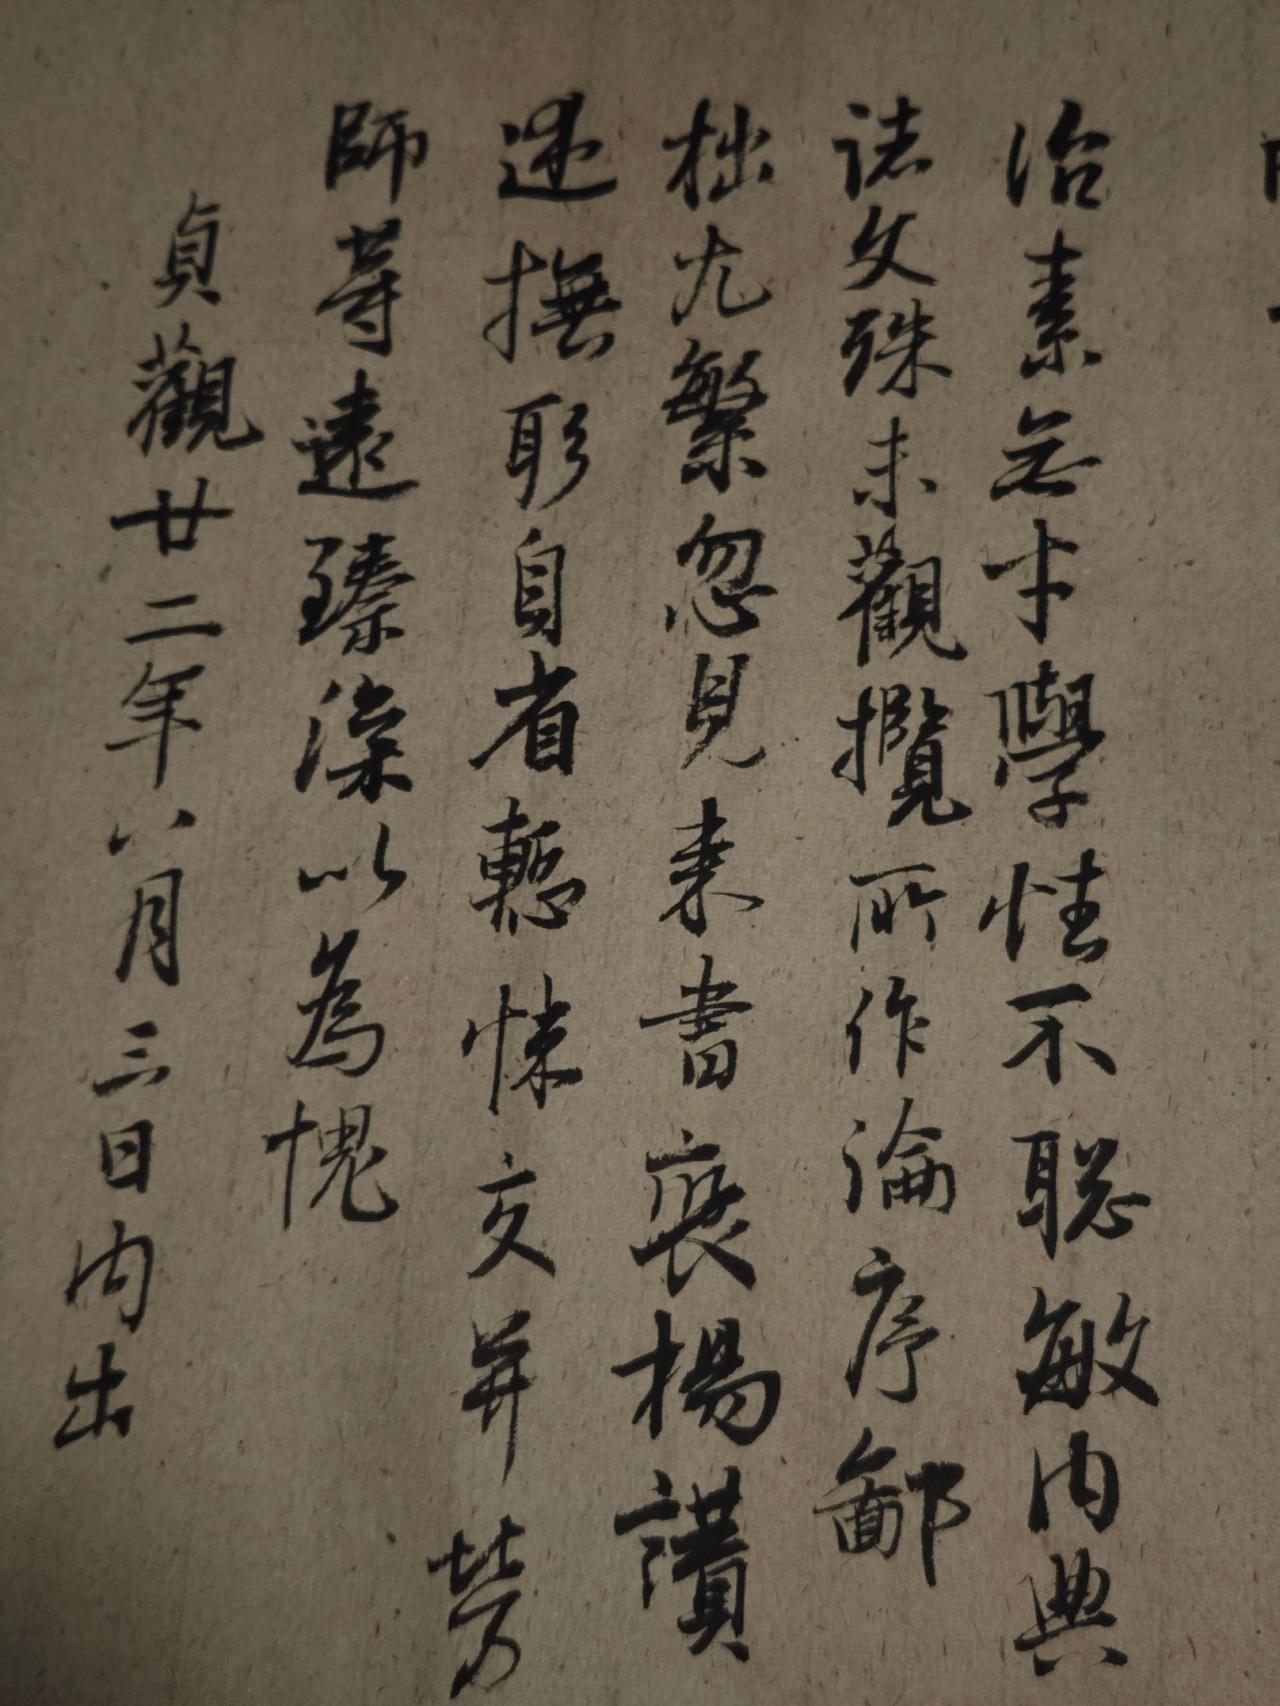 治素无才學性不聡敏内典
諸文殊未觀攬所作論序鄙
拙尤繁忽見来書褒楊讃
述撫躬自省慙悚交并勞
師等遠臻深以為愧
貞觀廿二年八月三日内出